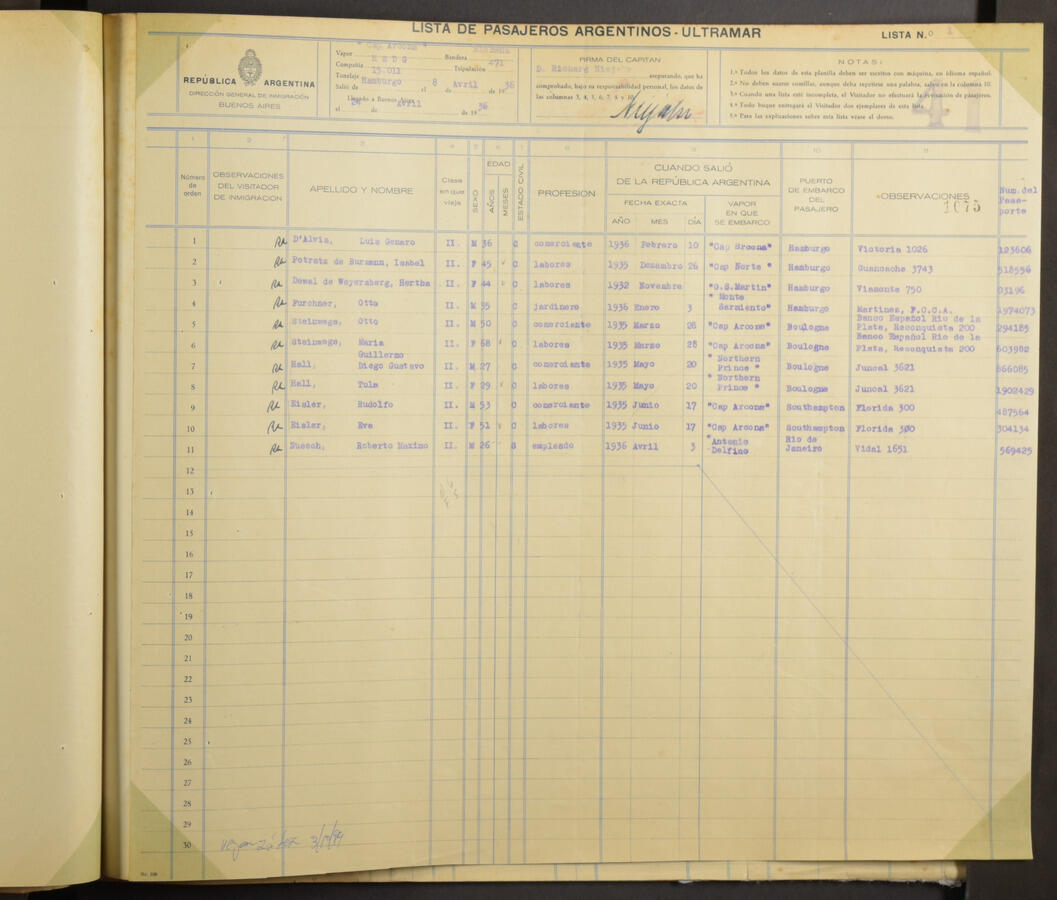 LISTA DE PASAJEROS ARGENTINOS - ULTRAMAR
LISTA N.º
REPÚBLICA ARGENTINA
DIRECCIÓN GENERAL DE INMIGRACIÓN
BUENOS AIRES
Vapor "Cap Arcona" Bandera
Compañía H S D G Tripulación 471
Tonelaje 15.011
Salió de Hamburgo el 8 de Avril de 1936
Llegado a Buenos Aires
el 24 de Avril de 1936
FIRMA DEL CAPITAN
D. Richard asegurando, que ha
comprobado, bajo su responsabilidad personal, los datos de
las columnas 3, 4, 5, 6, 7, 8 y 10
NOTAS:
1.ª Todos los datos de esta planilla deben ser escritos con máquina, en idioma español.
2.ª No deben usarse comillas, aunque deba repetirse una palabra, salvo en la columna 10.
3.ª Cuando una lista esté incompleta, el Visitador no efectuará la revisación de pasajeros.
4.ª Todo buque entregará al Visitador dos ejemplares de esta lista.
5.ª Para las explicaciones sobre esta lista véase al dorso.
41
1 2 3 4 5 6 7 8 9 10 11
Número de orden
OBSERVACIONES DEL VISITADOR DE INMIGRACION
APELLIDO Y NOMBRE
Clase en que viaja
SEXO
EDAD
AÑOS
MESES
ESTADO CIVIL
PROFESION
CUANDO SALIÓ
DE LA REPÚBLICA ARGENTINA
FECHA EXACTA
AÑO MES DÍA
VAPOR EN QUE SE EMBARCO
PUERTO DE EMBARCO DEL PASAJERO
OBSERVACIONES
1075
Num. del Pasa-porte
1 D'Alvis, Luis Genaro II. M 36 C comerciente 1936 Febrero 10 "Cap Arcona" Hamburgo Victoria 1026 123606
2 Potratz de Burmann, Isabel II. F 45 C labores 1935 Dezembro 26 "Cap Norte" Hamburgo Guancache 3743 518556
3 Dewal de Weyersberg, Hertha II. F 44 C labores 1932 Novembre "G.S.Martin" Hamburgo Viamonte 750 03196
4 Furchner, Otto II. M 35 C jardinero 1936 Enero 3 "Monte Sarmiento" Hamburgo Martinez, F.C.C.A. 1974073
5 Steinwage, Otto II. M 50 C comerciente 1935 Marzo 28 "Cap Arcona" Boulogne Banco Español Rio de la Plata, Reconquista 200 294185
6 Steinwage, Maria II. F 68 C labores 1935 Marzo 28 "Cap Arcona" Boulogne Banco Español Rio de la Plata, Reconquista 200 603982
7 Hall, Guillermo Diego Gustavo II. M 27 C comerciente 1935 Mayo 20 "Northern Prince" Boulogne Juncal 3621 866085
8 Hall, Tula II. F 29 C labores 1935 Mayo 20 "Northern Prince" Boulogne Juncal 3621 1902429
9 Eisler, Rudolfo II. M 53 C comerciente 1935 Junio 17 "Cap Arcona" Southampton Florida 300 487564
10 Eisler, Eva II. F 51 C labores 1935 Junio 17 "Cap Arcona" Southampton Florida 300 304134
11 Nuesch, Roberto Maximo II. M 26 S empleado 1936 Avril 3 "Antonio Delfino" Rio de Janeiro Vidal 1651 569425
12
13
14
15
16
17
18
19
20
21
22
23
24
25
26
27
28
29
30